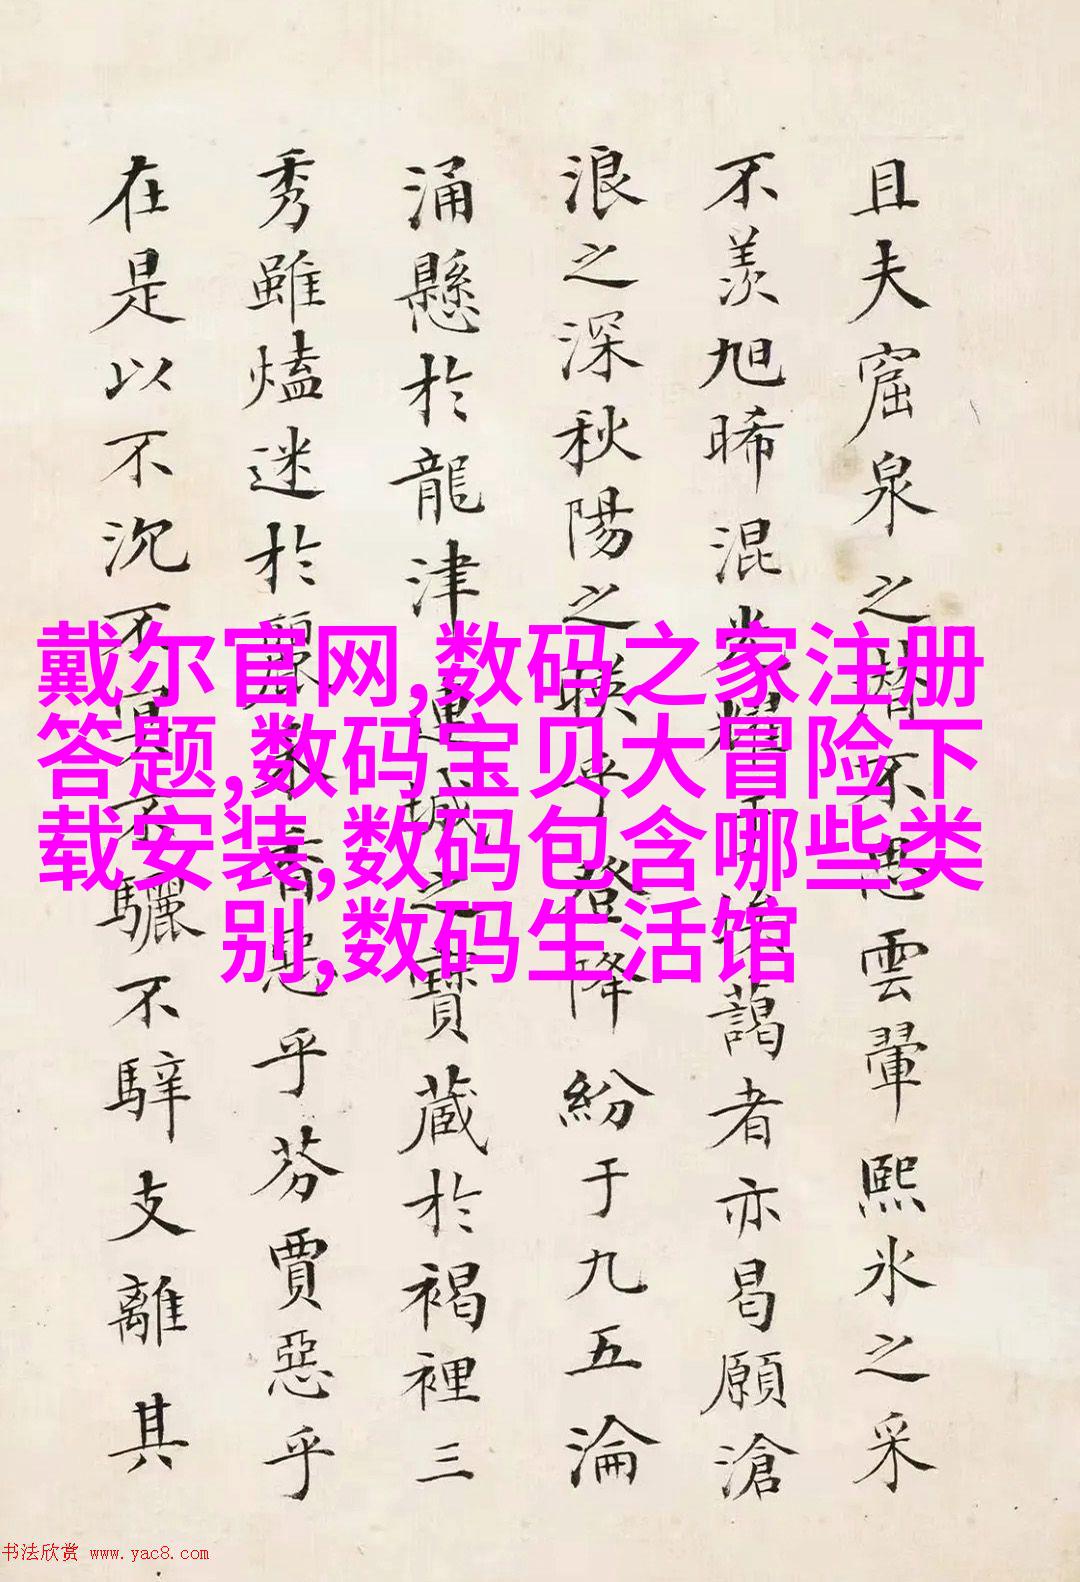 且夫窟泉之潜不思雲翬熙氷之采
不羨旭晞混耀藹者亦曷願滄
浪之深秋陽之映乎登降紛于九五淪
涌懸於龍津連城之寶藏於褐裡三
秀雖熆迷於麗采香惡乎芬賈惡乎
在是以不沉不冥不驪不騂支離其
戴尔官网,数码之家注册
答题,数码宝贝大冒险下
载安装,数码包含哪些类
别,数码生活馆
书法欣赏 www.yac8.com